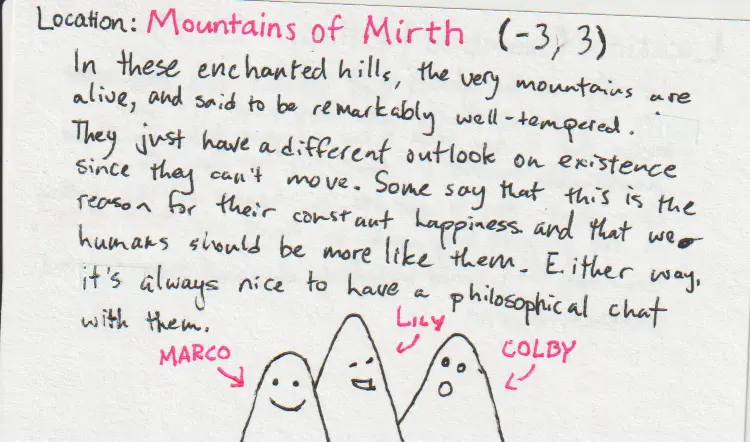 Location: Mountains of Mirth (-3, 3)
In these enchanted hills, the very mountains are
alive, and said to be remarkably well-tempered.
They just have a different outlook on existence
since they can't move. Some say that this is the
reason for their constant happiness and that we
humans should be more like them. Either way,
it's always nice to have a philosophical chat
with them.
LILY
MARCO
COLBY